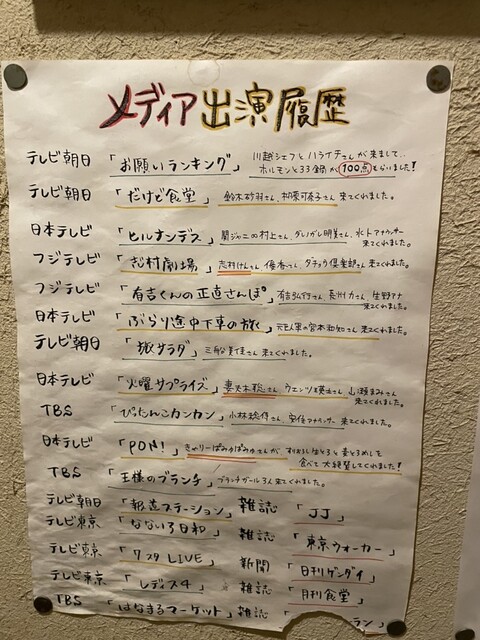 メディア出演履歴
テレビ朝日 「お願いランキング」 川越シェフとハライチさんが来まして、
ホルモンと33鍋が100点もらいました!
テレビ朝日 「だけど食堂」 鈴木砂羽さん、 さん 来てくれました。
日本テレビ 「ヒルナンデス」 関ジャニ∞村上さん、ダレノガレ明美さん、水トアナウンサー
来てくれました。
フジテレビ 「志村劇場」 志村けんさん、優香さん、ダチョウ倶楽部さん 来てくれました。
フジテレビ 「有吉くんの正直さんぽ」 有吉弘行さん、長州力さん、生野アナ
来てくれました。
日本テレビ 「ぶらり途中下車の旅」 元巨人軍の宮本和知さん 来てくれました。
テレビ朝日 「旅サラダ」 三船美佳さん 来てくれました。
日本テレビ 「火曜サプライズ」 妻夫木聡さん、ウエンツ瑛士さん、山瀬まみさん
来てくれました。
TBS 「ぴったんこカンカン」 小林稔侍さん、安住アナウンサー 来てくれました。
日本テレビ 「PON!」 きゃりーぱみゅぱみゅさんが、
食べて大絶賛してくれました!
TBS 「王様のブランチ」 ブランチガール3人来てくれました。
テレビ朝日 「報道ステーション」 雑誌 「JJ」
テレビ東京 「なないろ日和」 雑誌 「東京ウォーカー」
テレビ東京 「7スタLIVE」 新聞 「日刊ゲンダイ」
テレビ東京 「レディス4」 雑誌 「月刊食堂」
TBS 「はなまるマーケット」 雑誌 ラン」